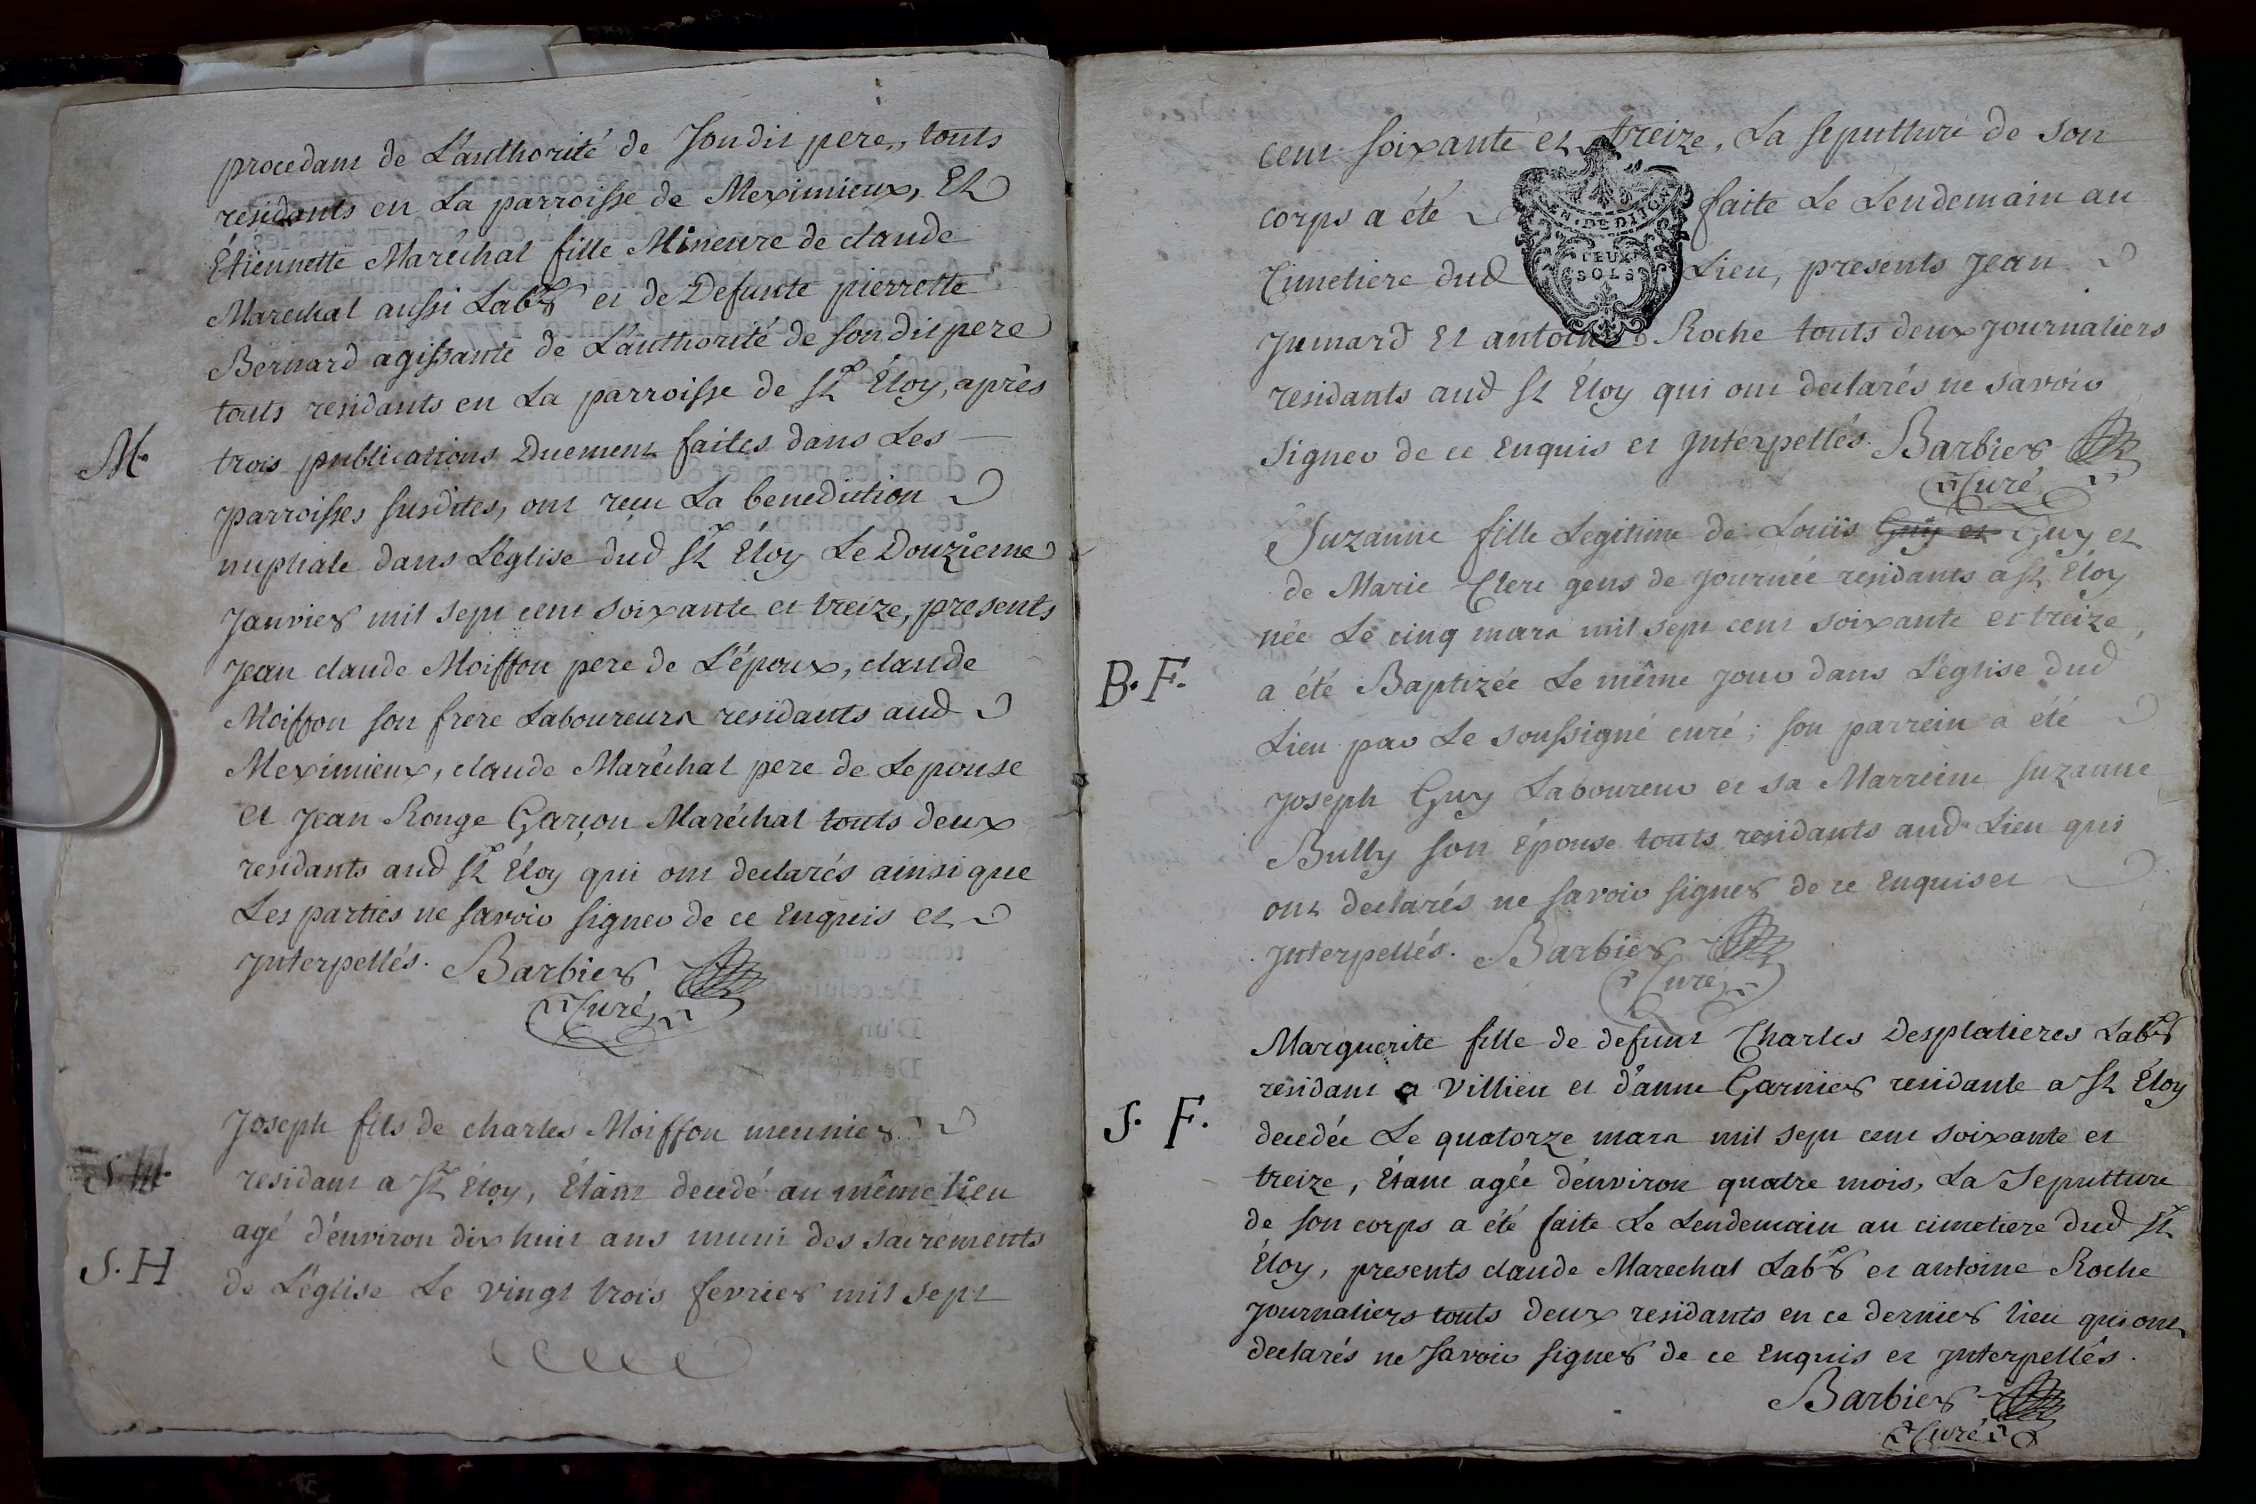 procedant de L'authorité de Sondit pere, touts
residants en La parroisse de Meximieux, Et
Étiennette Maréchal fille Mineure de claude
Marechal aussi Labr et de Defunte pierrette
Bernard agissante de L'authorité de sondit pere
touts residants en La parroisse de St Éloy, après
M. trois publications Duement faites dans Les
parroisses susdites, ont recu La benediction
nuptiale dans L'église dud St Éloy Le Douzieme
Janvier mil sept cent soixante et treize, presents
Jean claude Moiffon pere de L'époux, claude
Moiffon son frere Laboureurs residants aud
Meximieux, claude Maréchal pere de Lepouse
et Jean Rouge Garçon Maréchal touts deux
residants aud St Éloy qui ont declarés ainsi que
Les parties ne savoir signer de ce Enquis et
Interpellés. Barbier
Curé
Joseph fils de charles Moiffon meunier
residant a St Éloy, Étant decedé au même Lieu
agé d'environ dix huit ans muni des sacréments
S. H
de L'église Le vingt trois fevrier mil sept
cent soixante et treize, La sepulture de son
corps a été faite Le Lendemain au
Cimetiere dud Lieu, presents Jean
Jumard Et antoine Roche touts deux Journaliers
residants aud St Éloy qui ont declarés ne savoir
signer de ce Enquis et Interpellés. Barbier
Curé
GEN. DE DIJON
DEUX
SOLS
Suzanne fille Legitime de Louis Guy et Guy et
de Marie Clerc gens de Journée residants a St Éloy
née Le cinq mars mil sept cent soixante et treize,
B. F. a été Baptizée Le même jour dans L'église dud
Lieu par Le soussigné curé; son parrein a été
Joseph Guy Laboureur et sa Marreine suzanne
Bully son Épouse touts residants aud Lieu qui
ont declarés ne savoir signer de ce Enquis et
Interpellés. Barbier
Curé
Marguerite fille de defunt Charles Desplatieres Labr
residant a Villieu et d'anne Garnier residante a St Éloy
S. F. decedée Le quatorze mars mil sept cent soixante et
treize, Étant agée d'environ quatre mois, La Sepulture
de son corps a été faite Le Lendemain au cimetiere dud St
Éloy, presents claude Marechal Labr et antoine Roche
Journaliers touts deux residants en ce dernier lieu qui ont
declarés ne savoir signer de ce Enquis et Interpellés.
Barbier
Curé